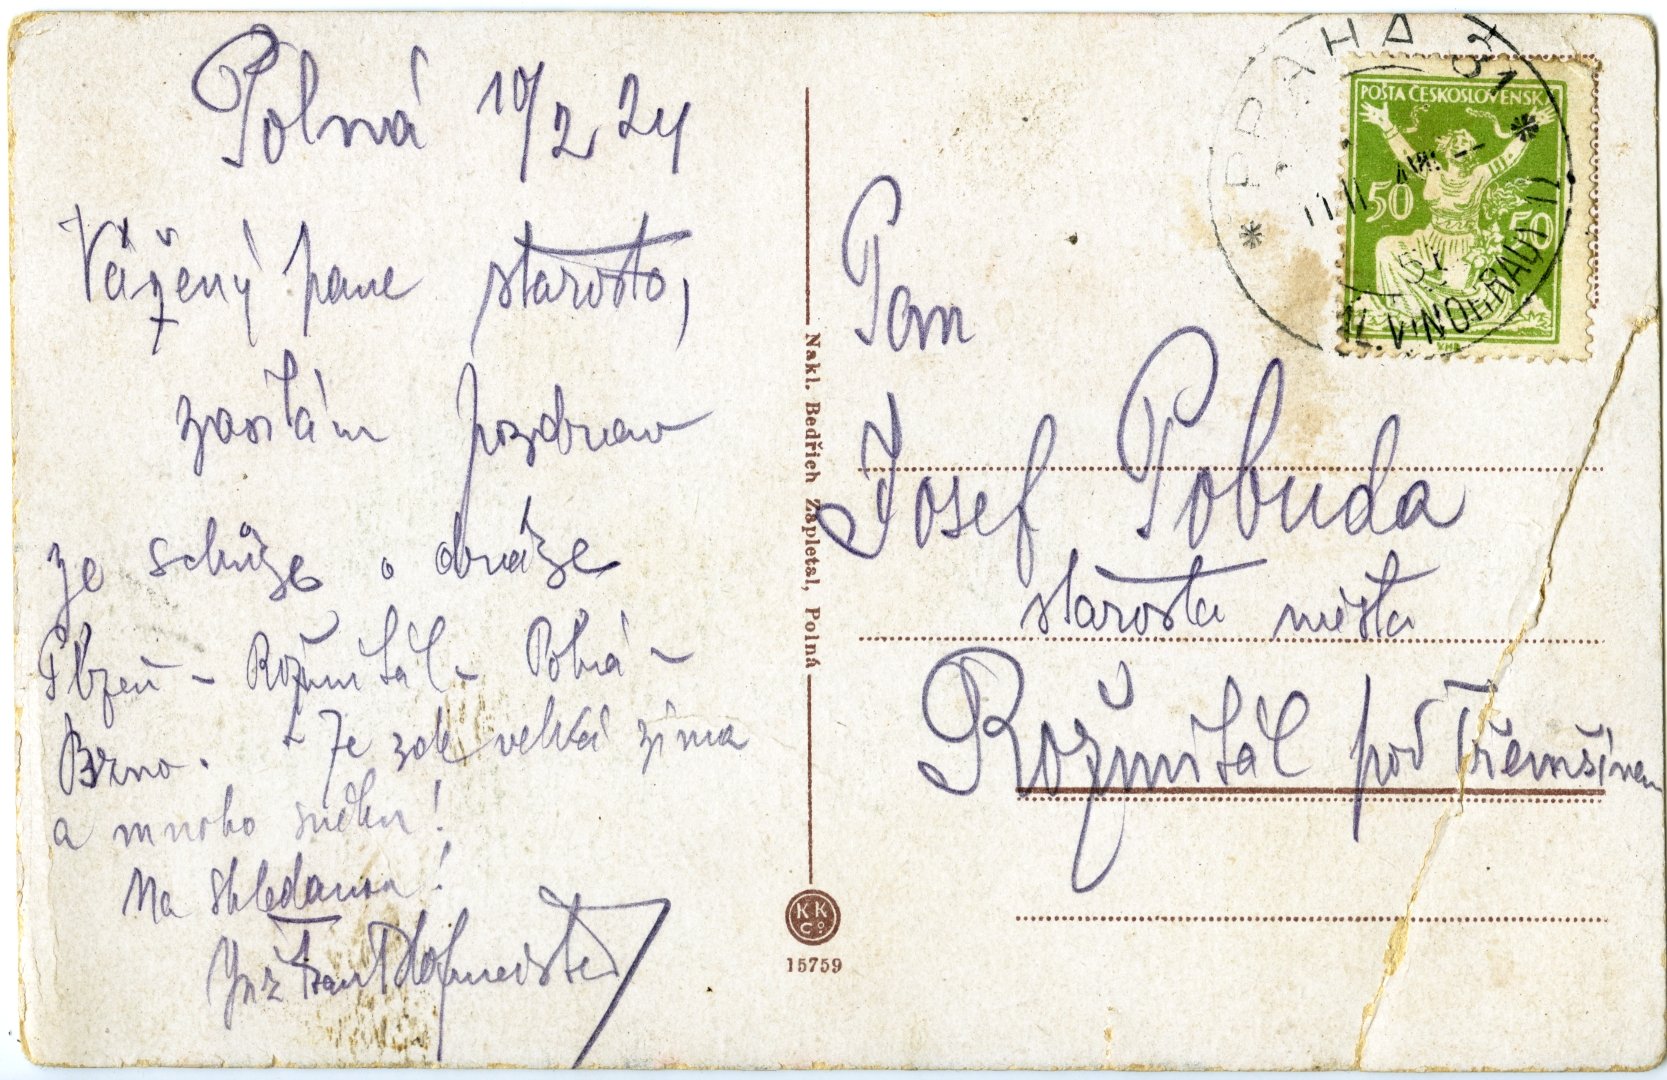 Polná 10/2 24
Vážený pane starosto,
zasílám pozdrav
ze schůze o dráze
Plzeň - Rožmitál - Polná -
Brno. - Je zde velká zima
a mnoho sněhu!
Na shledanou!
Inž Frant Hofmeister
Nakl. Bedřich Zapletal, Polná
KK
Co
15759
PRAHA 31
11 II
KRÁL. VINOHRADY
POŠTA ČESKOSLOVENSKÁ
50
50
Pan
Josef Pobuda
starosta města
Rožmitál pod Třemšínem